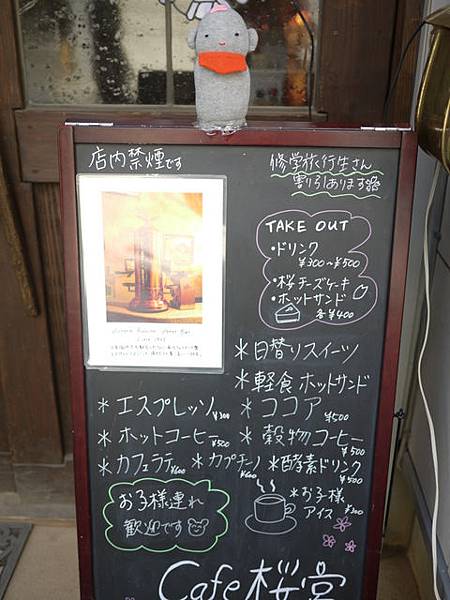 店内禁煙です
修学旅行生さん
割引あります
TAKE OUT
・ドリンク
¥300~¥500
・桜チーズケーキ
・ホットサンド
各¥400
*日替りスイーツ
*軽食 ホットサンド
*エスプレッソ ¥300
*ココア ¥500
*ホットコーヒー ¥500
*穀物コーヒー ¥500
*カフェラテ ¥600
*カプチーノ ¥600
*酵素ドリンク ¥500
お子様連れ
歓迎です
*お子様
アイス ¥300
Cafe 桜堂